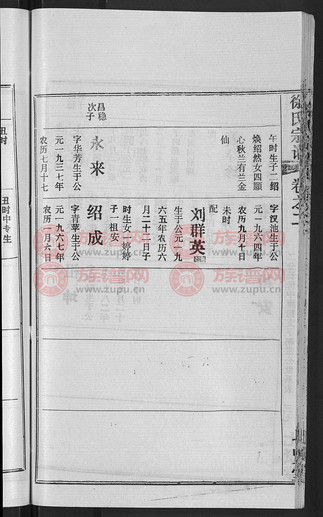 徐氏宗谱 卷之二
午时生子二绍
焕绍然女四顺
心秋兰有兰金
仙
昌稳
次子
永来
字华芳生于公
元一九三七年
农历七月十七
字汉池生于公
元一九六四年
农历九月十日
未时
配
刘群英
生于公元一九
六五年农历六
月二十二日子
时生女一婷婷
子一祖安
绍成
字青華生于公
元一九六七年
农历一月六日
丑时
丑时中专生
族谱网
www.zupu.cn
族谱网
www.zupu.cn